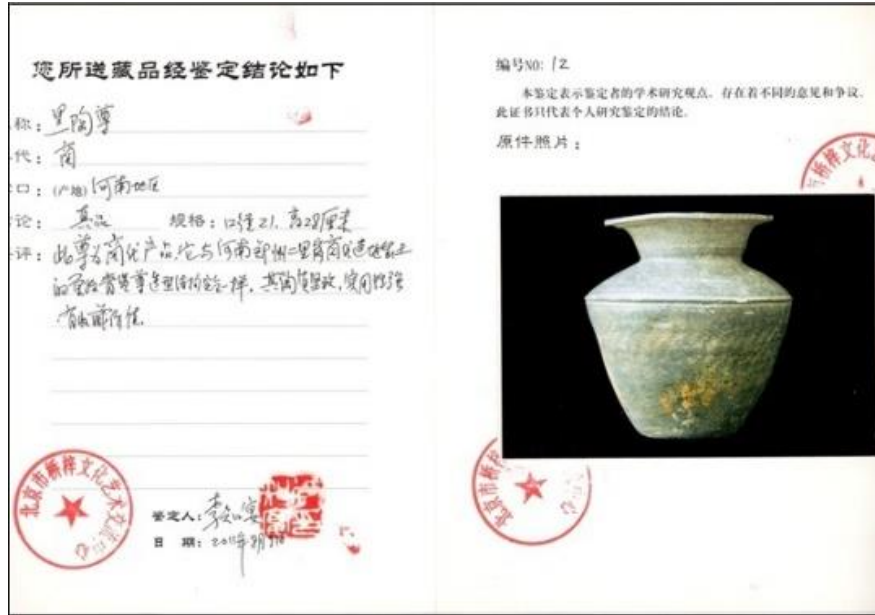 您所送藏品经鉴定结论如下
称：黑陶尊
代：商
口：(产地)河南地区
论：真品 规格：口径21.高28厘米
评：此尊为商代产品.它与河南郑州二里岗商代遗址出土
的 尊造型结构完全一样，其陶质坚致，实用性强
有收藏价值.
北京市桥梓文化艺术交流中心
鉴定人：李
日 期：2011年8月
编号NO: 12
本鉴定表示鉴定者的学术研究观点，存在着不同的意见和争议，
此证书只代表个人研究鉴定的结论。
原件照片：
市桥梓文化艺
北京市桥梓文化